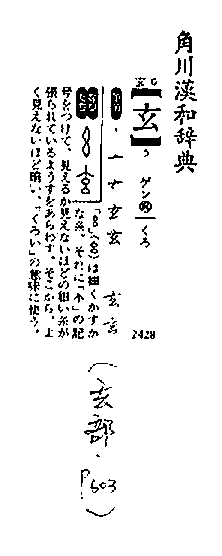 角川漢和辞典
玄
【玄】
ゲン㊊ くろ
2428
、 亠 ナ 玄 玄
「8」(玄)は細くかすか
な糸。それに「亠」の記
号をつけて、見えるか見えないほどの細い糸が
張られているようすをあらわす。そこから、よ
く見えないほど暗い、「くろい」の意味に使う。
(玄部・
P.603)